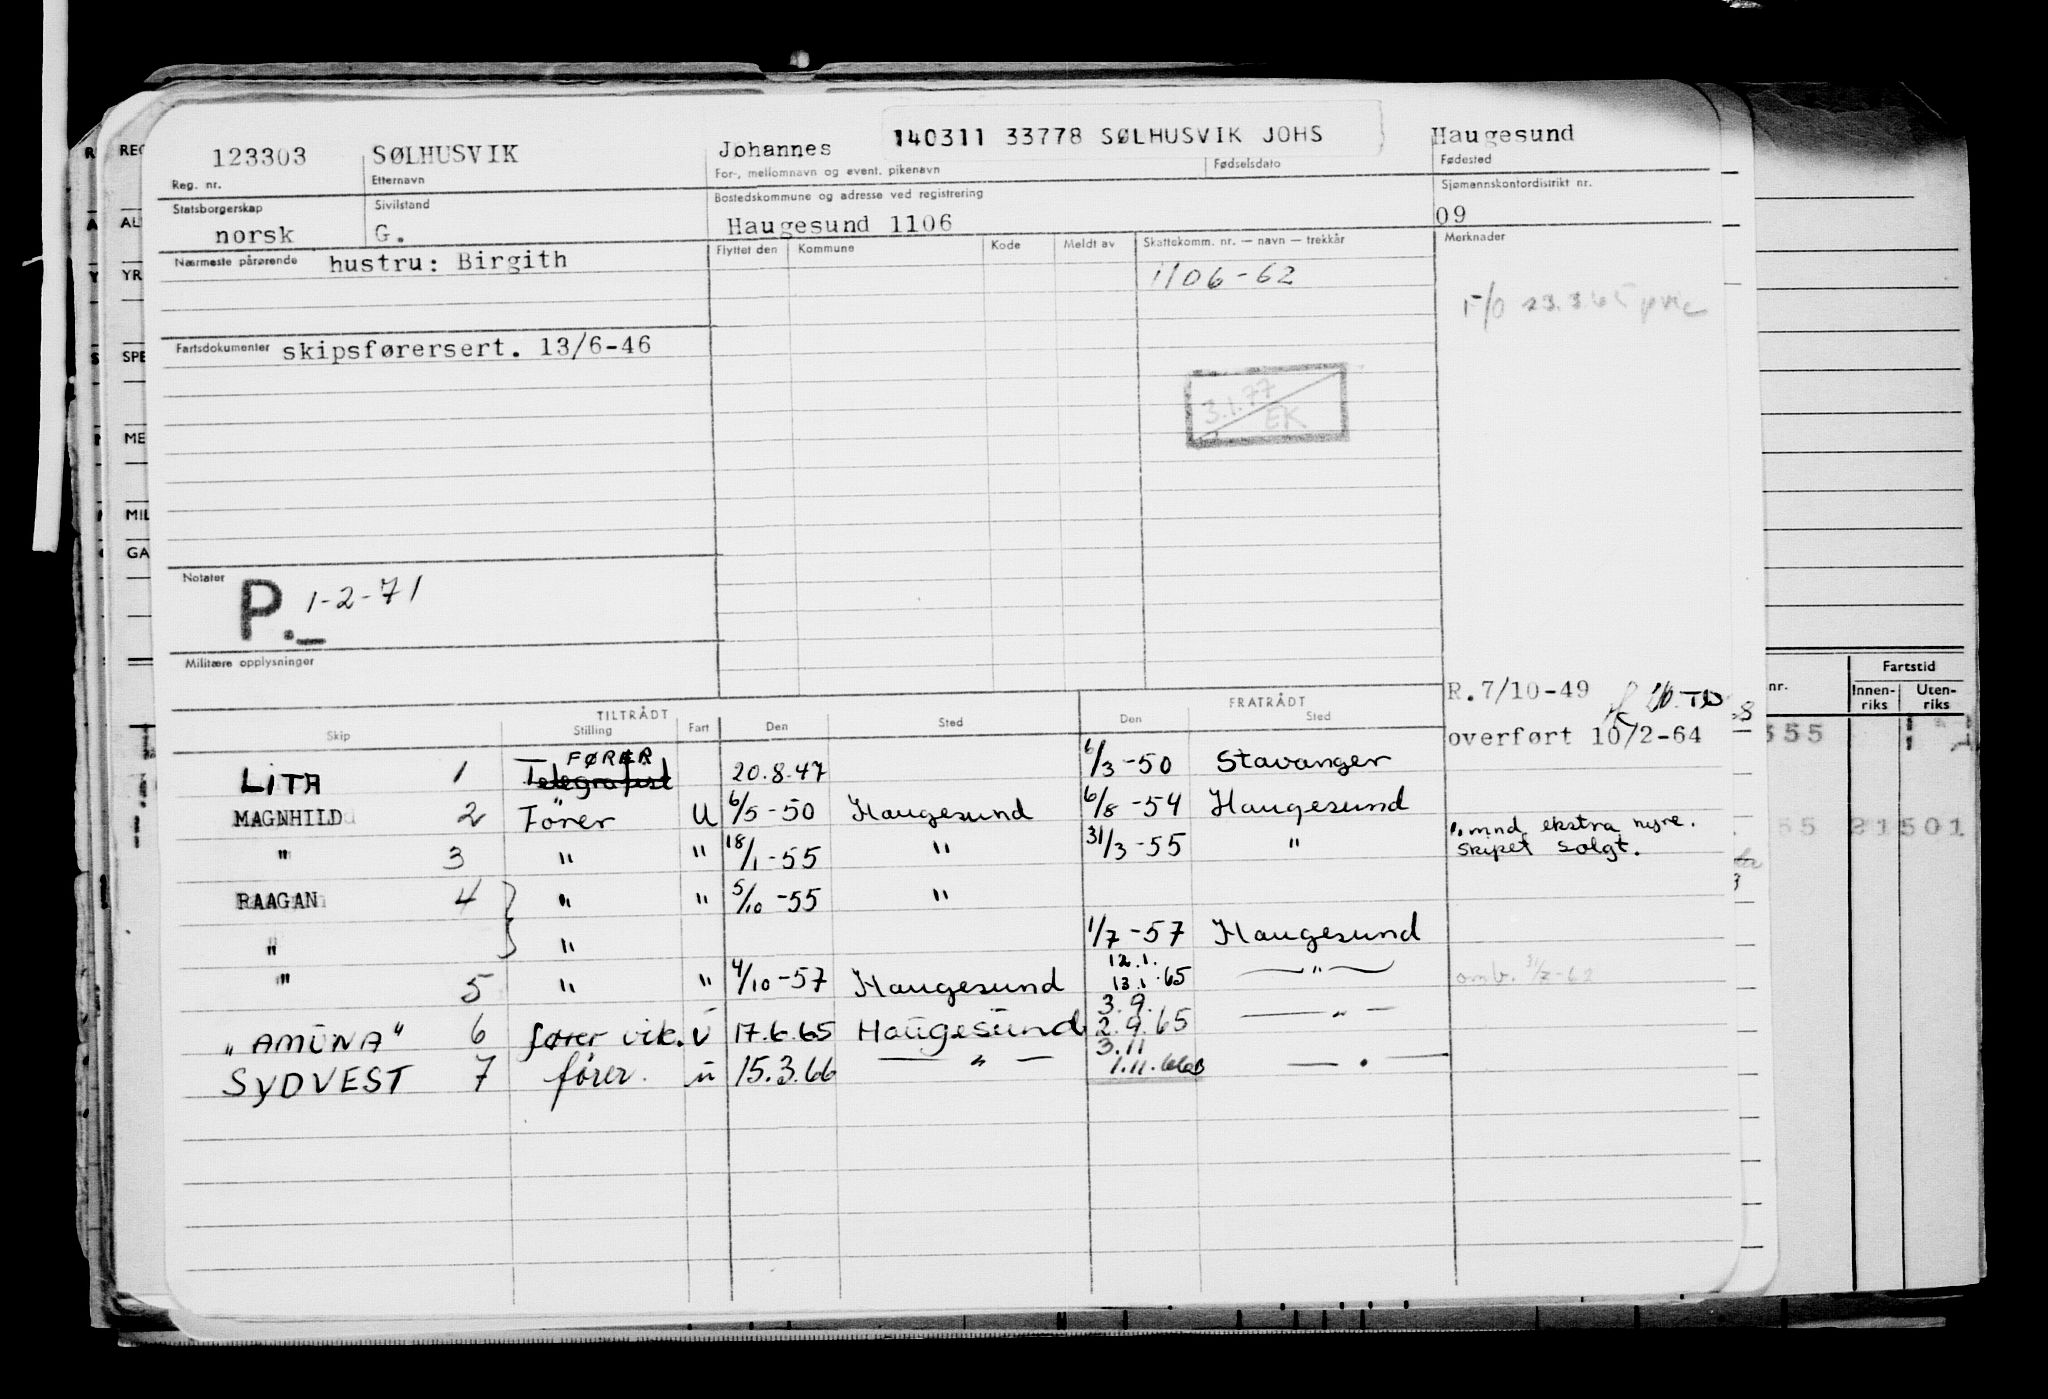 123303 SØLHUSVIK Johannes 140311 33778 SØLHUSVIK JOHS Haugesund
Reg. nr. Etternavn For-, mellomnavn og event. pikenavn Fødselsdato Fødested
Statsborgerskap Sivilstand Bostedskommune og adresse ved registrering Sjømannskontordistrikt nr.
norsk G. Haugesund 1106 09
Nærmeste pårørende hustru: Birgith Flyttet den Kommune Kode Meldt av Skattekomm. nr. — navn — trekkår Merknader
1106-62
F/O 23.3.65
Fartsdokumenter skipsførersert. 13/6-46
3.1.77
EK
Notater
P. 1-2-71
Militære opplysninger
R.7/10-49
TILTRÅDT FRATRÅDT
Skip Stilling Fart Den Sted Den Sted
overført 10/2-64
LITA 1 Telegrafist FØRER 20.8.47 6/3-50 Stavanger
MAGNHILD 2 Fører U 6/5-50 Haugesund 6/8-54 Haugesund
" 3 " " 18/1-55 " 31/3-55 " mnd. ekstra hyre.
skipet solgt.
RAAGAN 4 " " 5/10-55 "
" " 1/7-57 Haugesund
" 5 " " 4/10-57 Haugesund 12.1. 13.1.65 — " — omb. 31/7-62
"AMUNA" 6 fører vik. U 17.6.65 Haugesund 3.9. 2.9.65 — " —
SYDVEST 7 fører. U 15.3.66 — " — 3.11 1.11.66 — " —
REG
AL
YR
SPE
ME
MIL
GA
nr. Fartstid
Innen-
riks
Uten-
riks
555
55 21501